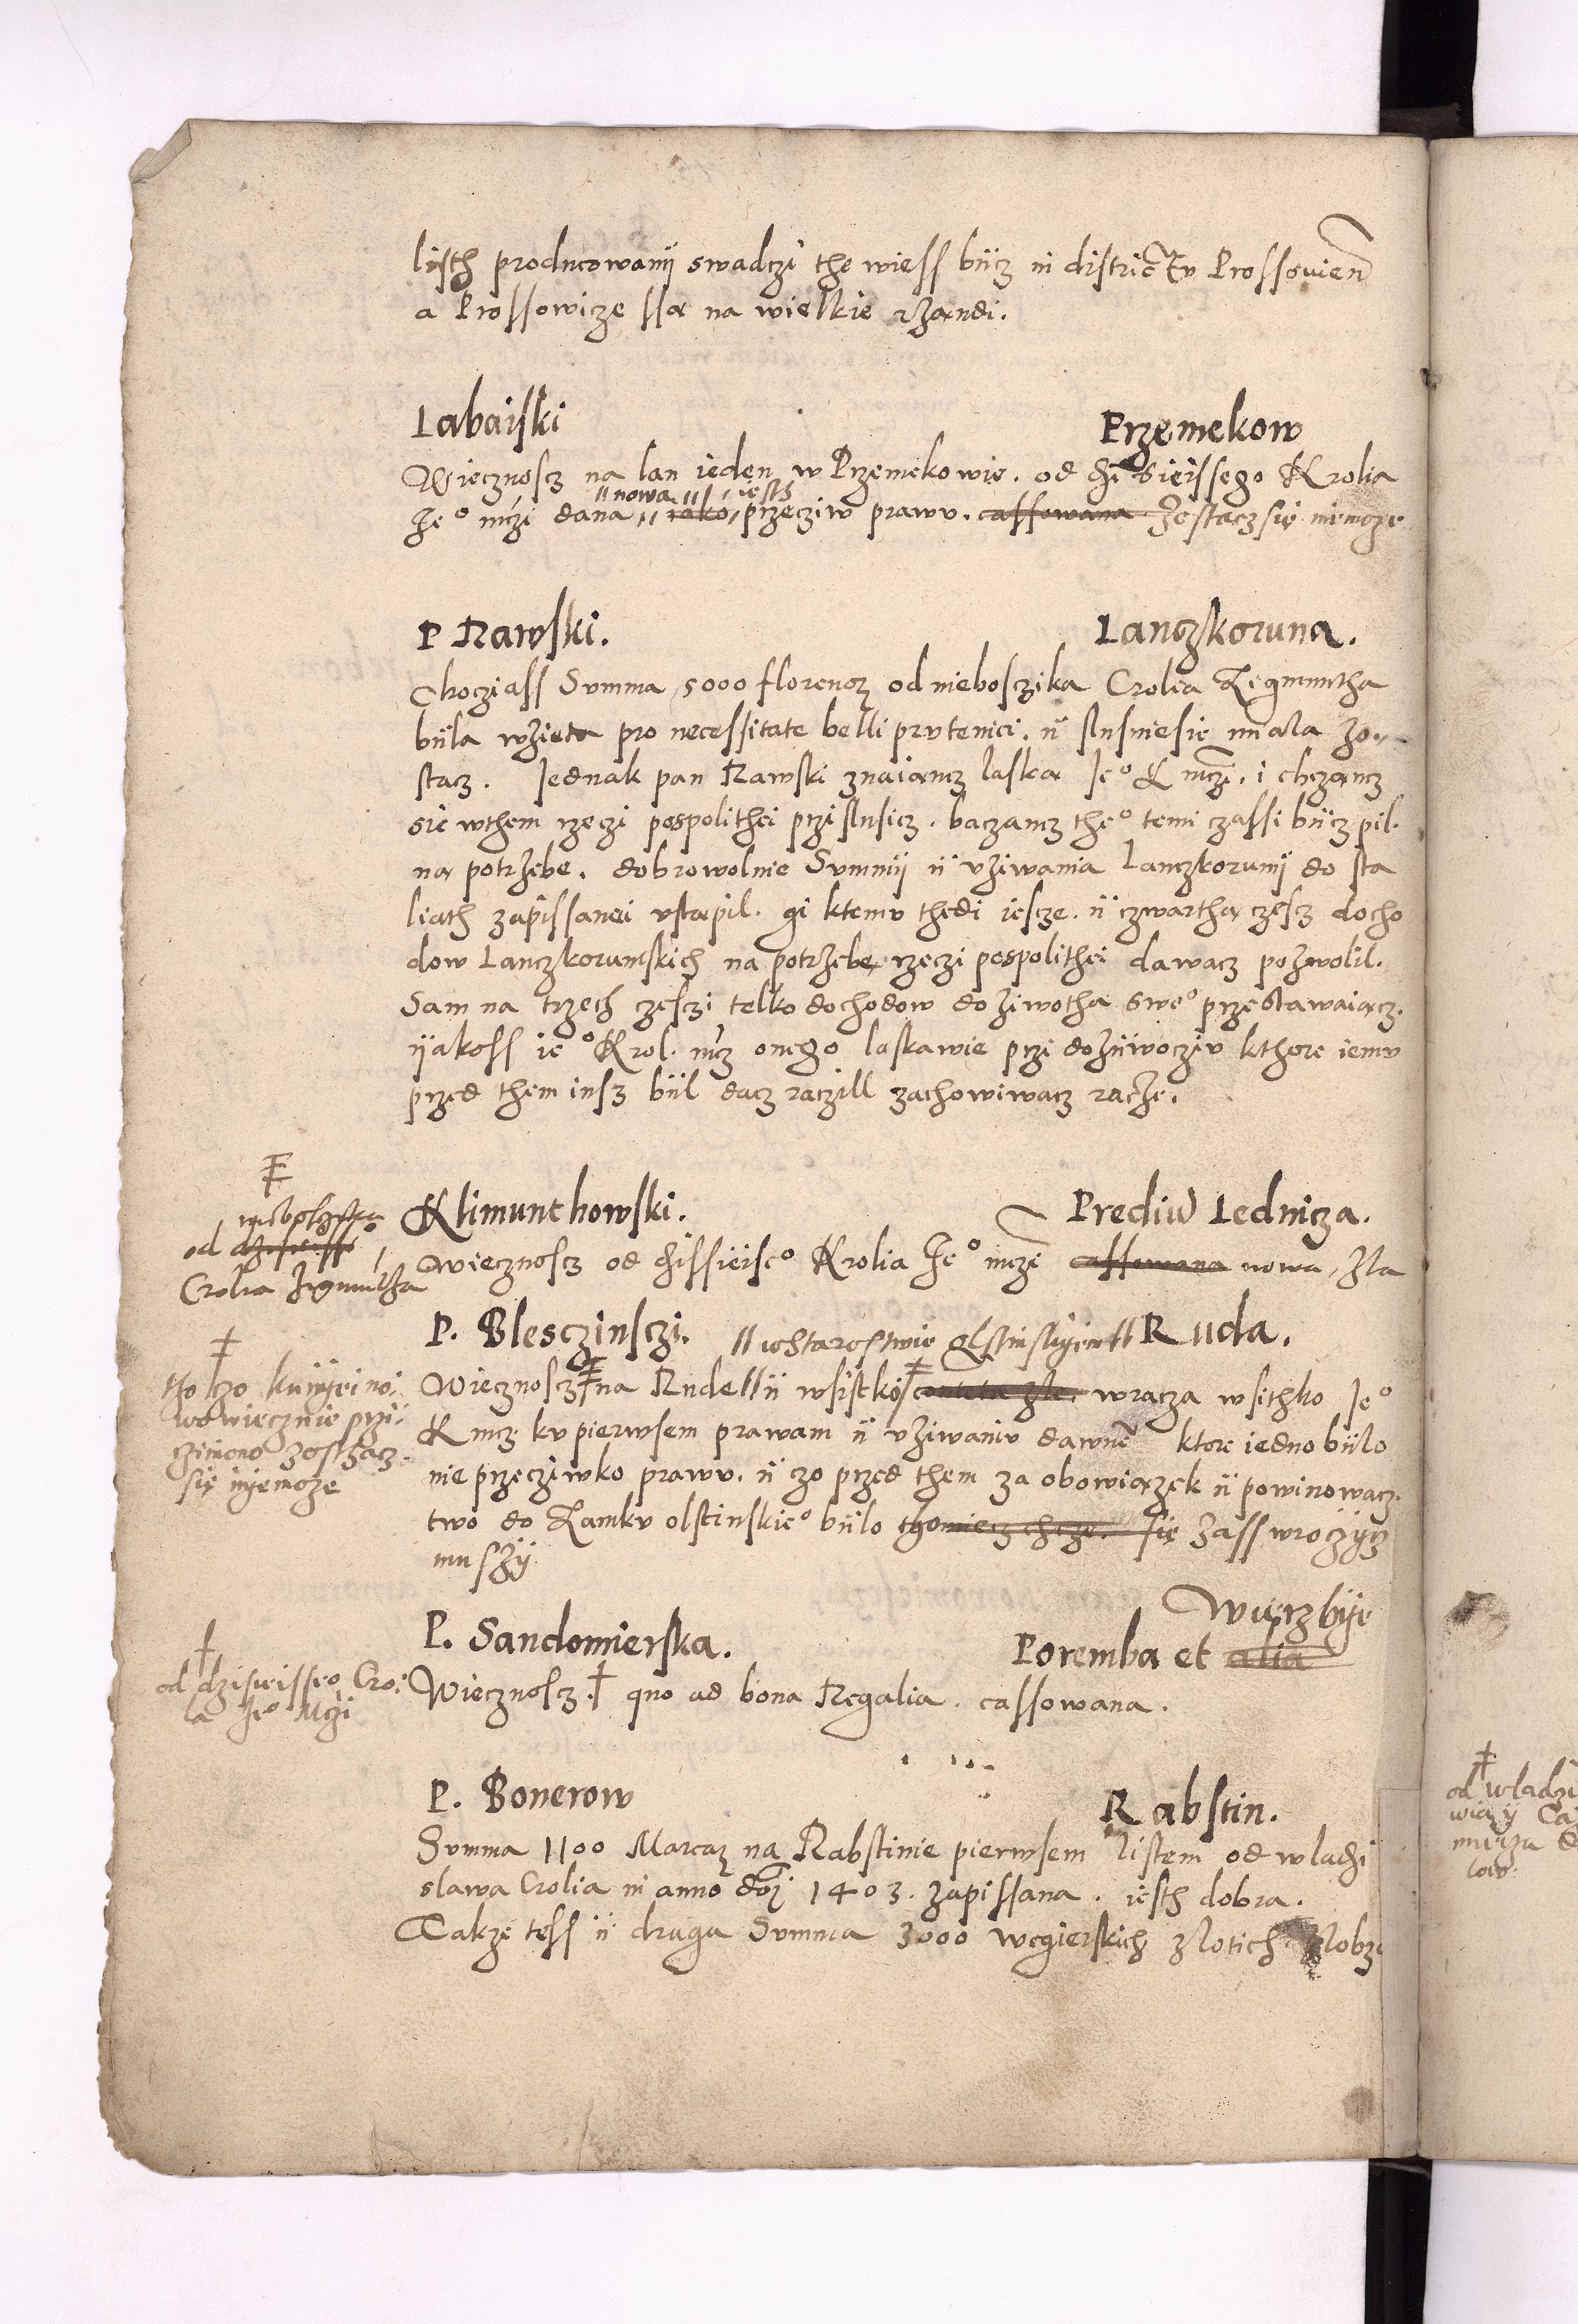 listh producowanÿ swadczi the wiess bÿcz in districtu Prossouien
a Prossowicze ssą na wielkie rżandi.
Labaiski Przemekow
Wiecznoscz na lan ieden w Przemekowie. od dzisieissego Krolia
Jeº mczi dana "nowa" iako iesth przecziw prawu. cassowana Zostacz się niemoże
P Rawski. Lanczkoruna.
Chocziass Summa 5000 florenoz od nieboszika Crolia Zigmuntha
bÿla wżieta pro necessitate belli prutenici. ÿ slusniesie miala zo-
stacz. Jednak pan Rawski znaiancz laską Jeº K mczi. i chczancz
sie wthem rzeczi pospolithei przislusicz. baczancz theº temi czassi bÿcz pil.
ną potrżebe. dobrowolnie Summÿ ÿ vżiwania Lanczkorunÿ do sta
liath zapissanei vstąpil. gi ktemu thedi iescze. ÿ czwarthą częscz docho
dow Lanczkorunskich na potrżebę rzeczi pospolithei dawacz pożwolil.
Sam na trzech częsczi telko dochodow do żiwotha sweº przestawaiącz.
ÿakoss ieº Krol. mcz onego laskawie przi dożÿwocziu kthore iemu
przed them insz bÿl dacz raczill zachowiwacz racże.
nieboscżika
od dzisieisseº
Crolia Zigmuntha
Klimunthowski. Prediuw Lednicza.
Wiecznoscz od dzissieiseº Krolia Jeº mczi cassowana nowa, zla
P. Blesczinsczi. "wstarostwie olstinskÿem" Ruda.
tho czo kunÿei no:
wo wiecznie przi:
czinono zosthacz
się nÿemoże
Wiecznoscz na Rude ÿ wsistko contenta zle. wracza wsithko Jeº
K mcz. ku pierwsem prawam ÿ vżiwaniu dawne ktore iedno bÿlo
nie przecziwko prawu. ÿ czo przed them za obowiązek ÿ powinowacz.
two do Zamku olstinskieº bÿlo thomiecz chcze. się zass wroczÿcz
muszÿ
P. Sandomierska. Wierzbÿe
Poremba et alia
od dzisieisseo Cro:
la Jeº Mczi
Wiecznoscz. quo ad bona Regalia. cassowana.
P. Bonerow Rabstin.
Summa 1100 Marcaz na Rabstinie pierwsem listem od wladi
slawa Crolia in anno doi 1403. zapissana. iesth dobra.
Także tess ÿ druga Summa 3000 wegierskich zlotich
od wladzi
wią ÿ Ca